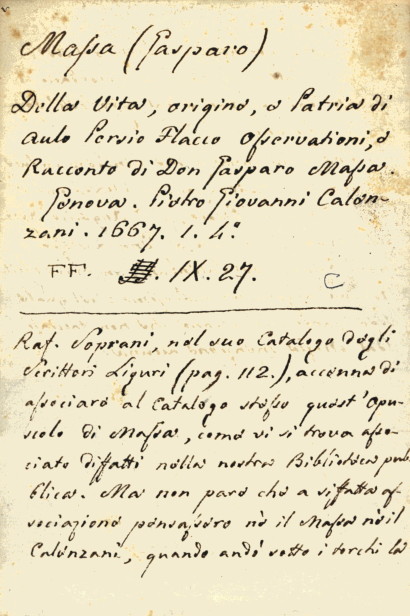 Maſsa (Gasparo)
Della Vita, origine, e Patria di
Aulo Persio Flacco Oſservationi, e
Racconto di Don Gasparo Maſsa.
Genova. Pietro Giovanni Calen-
zani. 1667. 1. 4.º
FF. IX. 27.
C
Raf. Soprani, nel suo Catalogo degli
Scrittori Liguri (pag. 112.), accenna di
aſsociare al Catalogo steſso quest'Opu-
scolo di Maſsa, come vi si trova aſso-
ciato diffatti nella nostra Biblioteca pub-
blica. Ma non pare che a siffatta aſ-
sociazione pensaſsero nè il Maſsa nè il
Calenzani, quando andò sotto i torchi la